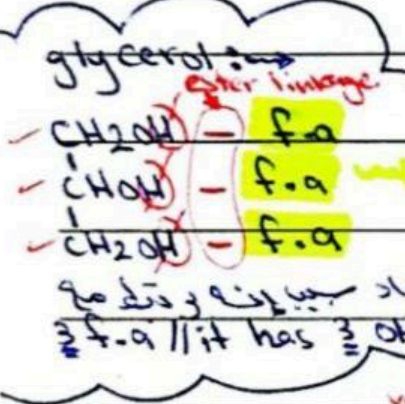 glycerol :→
ester linkage
CH2OH – f.a
CHOH – f.a
CH2OH – f.a
3 f.a // it has 3